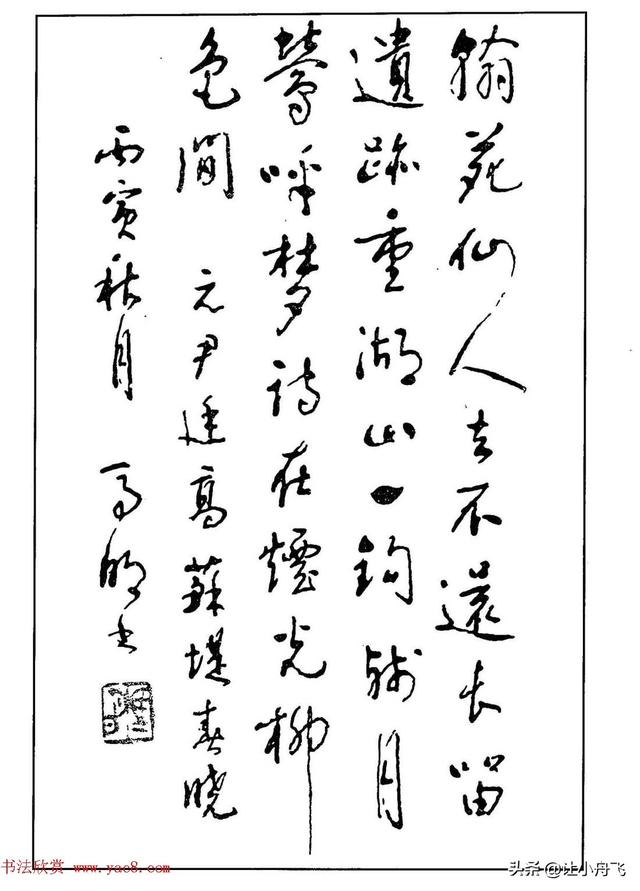 翰苑仙人去不還長留
遺跡重湖山一鈎殘月
鶯呼夢詩在煙光柳
色間 元尹廷高蘇堤春曉
丙寅秋月 書
书法欣赏 www.yac8.com
头条 @让小舟飞